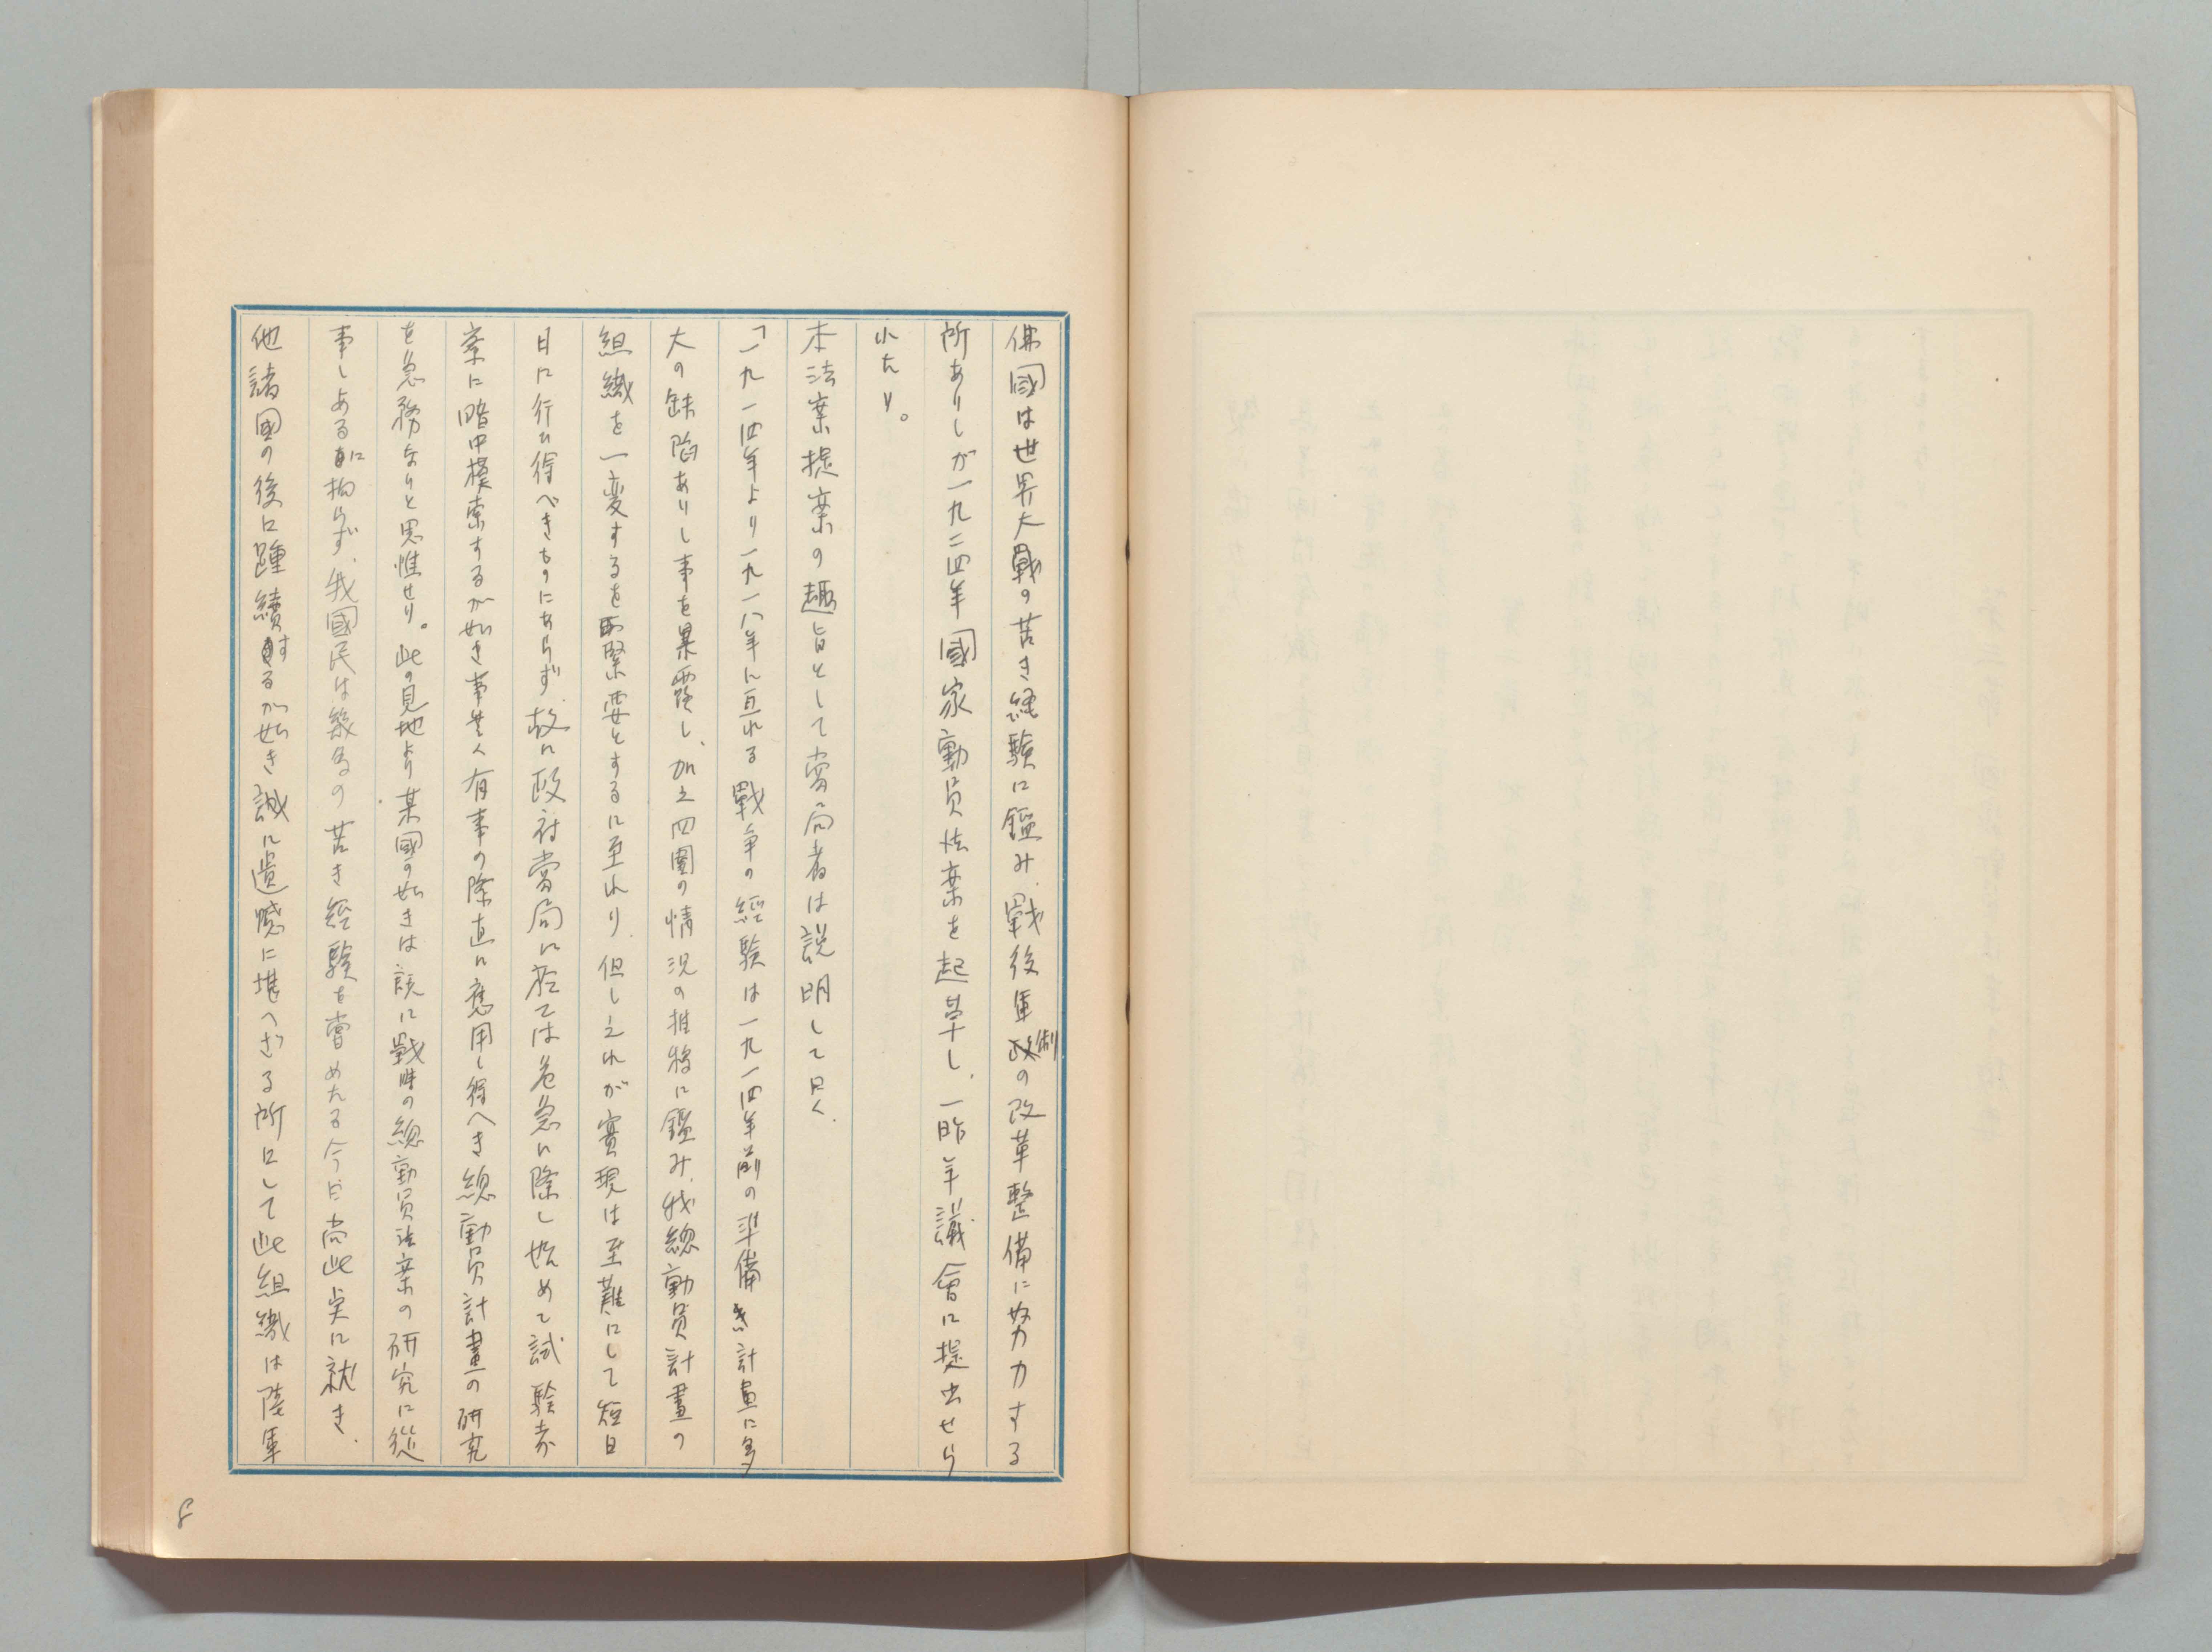 佛國は世界大戰の苦き経験に鑑み、戰後軍制の改革整備に努力する
所ありしが一九二四年國家動員法案を起草し、一昨年議會に提出せら
れたり。
本法案提案の趣旨として當局者は説明して曰く、
「一九一四年より一九一八年に亘れる戰争の經験は一九一四年前の準備計畫に多
大の缺陥ありし事を暴露し、加之四圍の情況の推移に鑑み、我總動員計畫の
組織を一変するを緊要とするに至れり、但し之れが實現は至難にして短日
日に行ひ得べきものにあらず、故に政府當局に於ては危急に際し始めて試験考
案に暗中模索するが如き事無く有事の際直に應用し得へき總動員計畫の研究
を急務なりと思惟せり。此の見地より某國の如きは既に戰時の總動員法案の研究に從
事しあるに拘らず、我國民は幾多の苦き経験を嘗めたる今日尚此点に就き、
他諸國の後に踵續するが如き誠に遺憾に堪へざる所にして此組織は陸軍
8